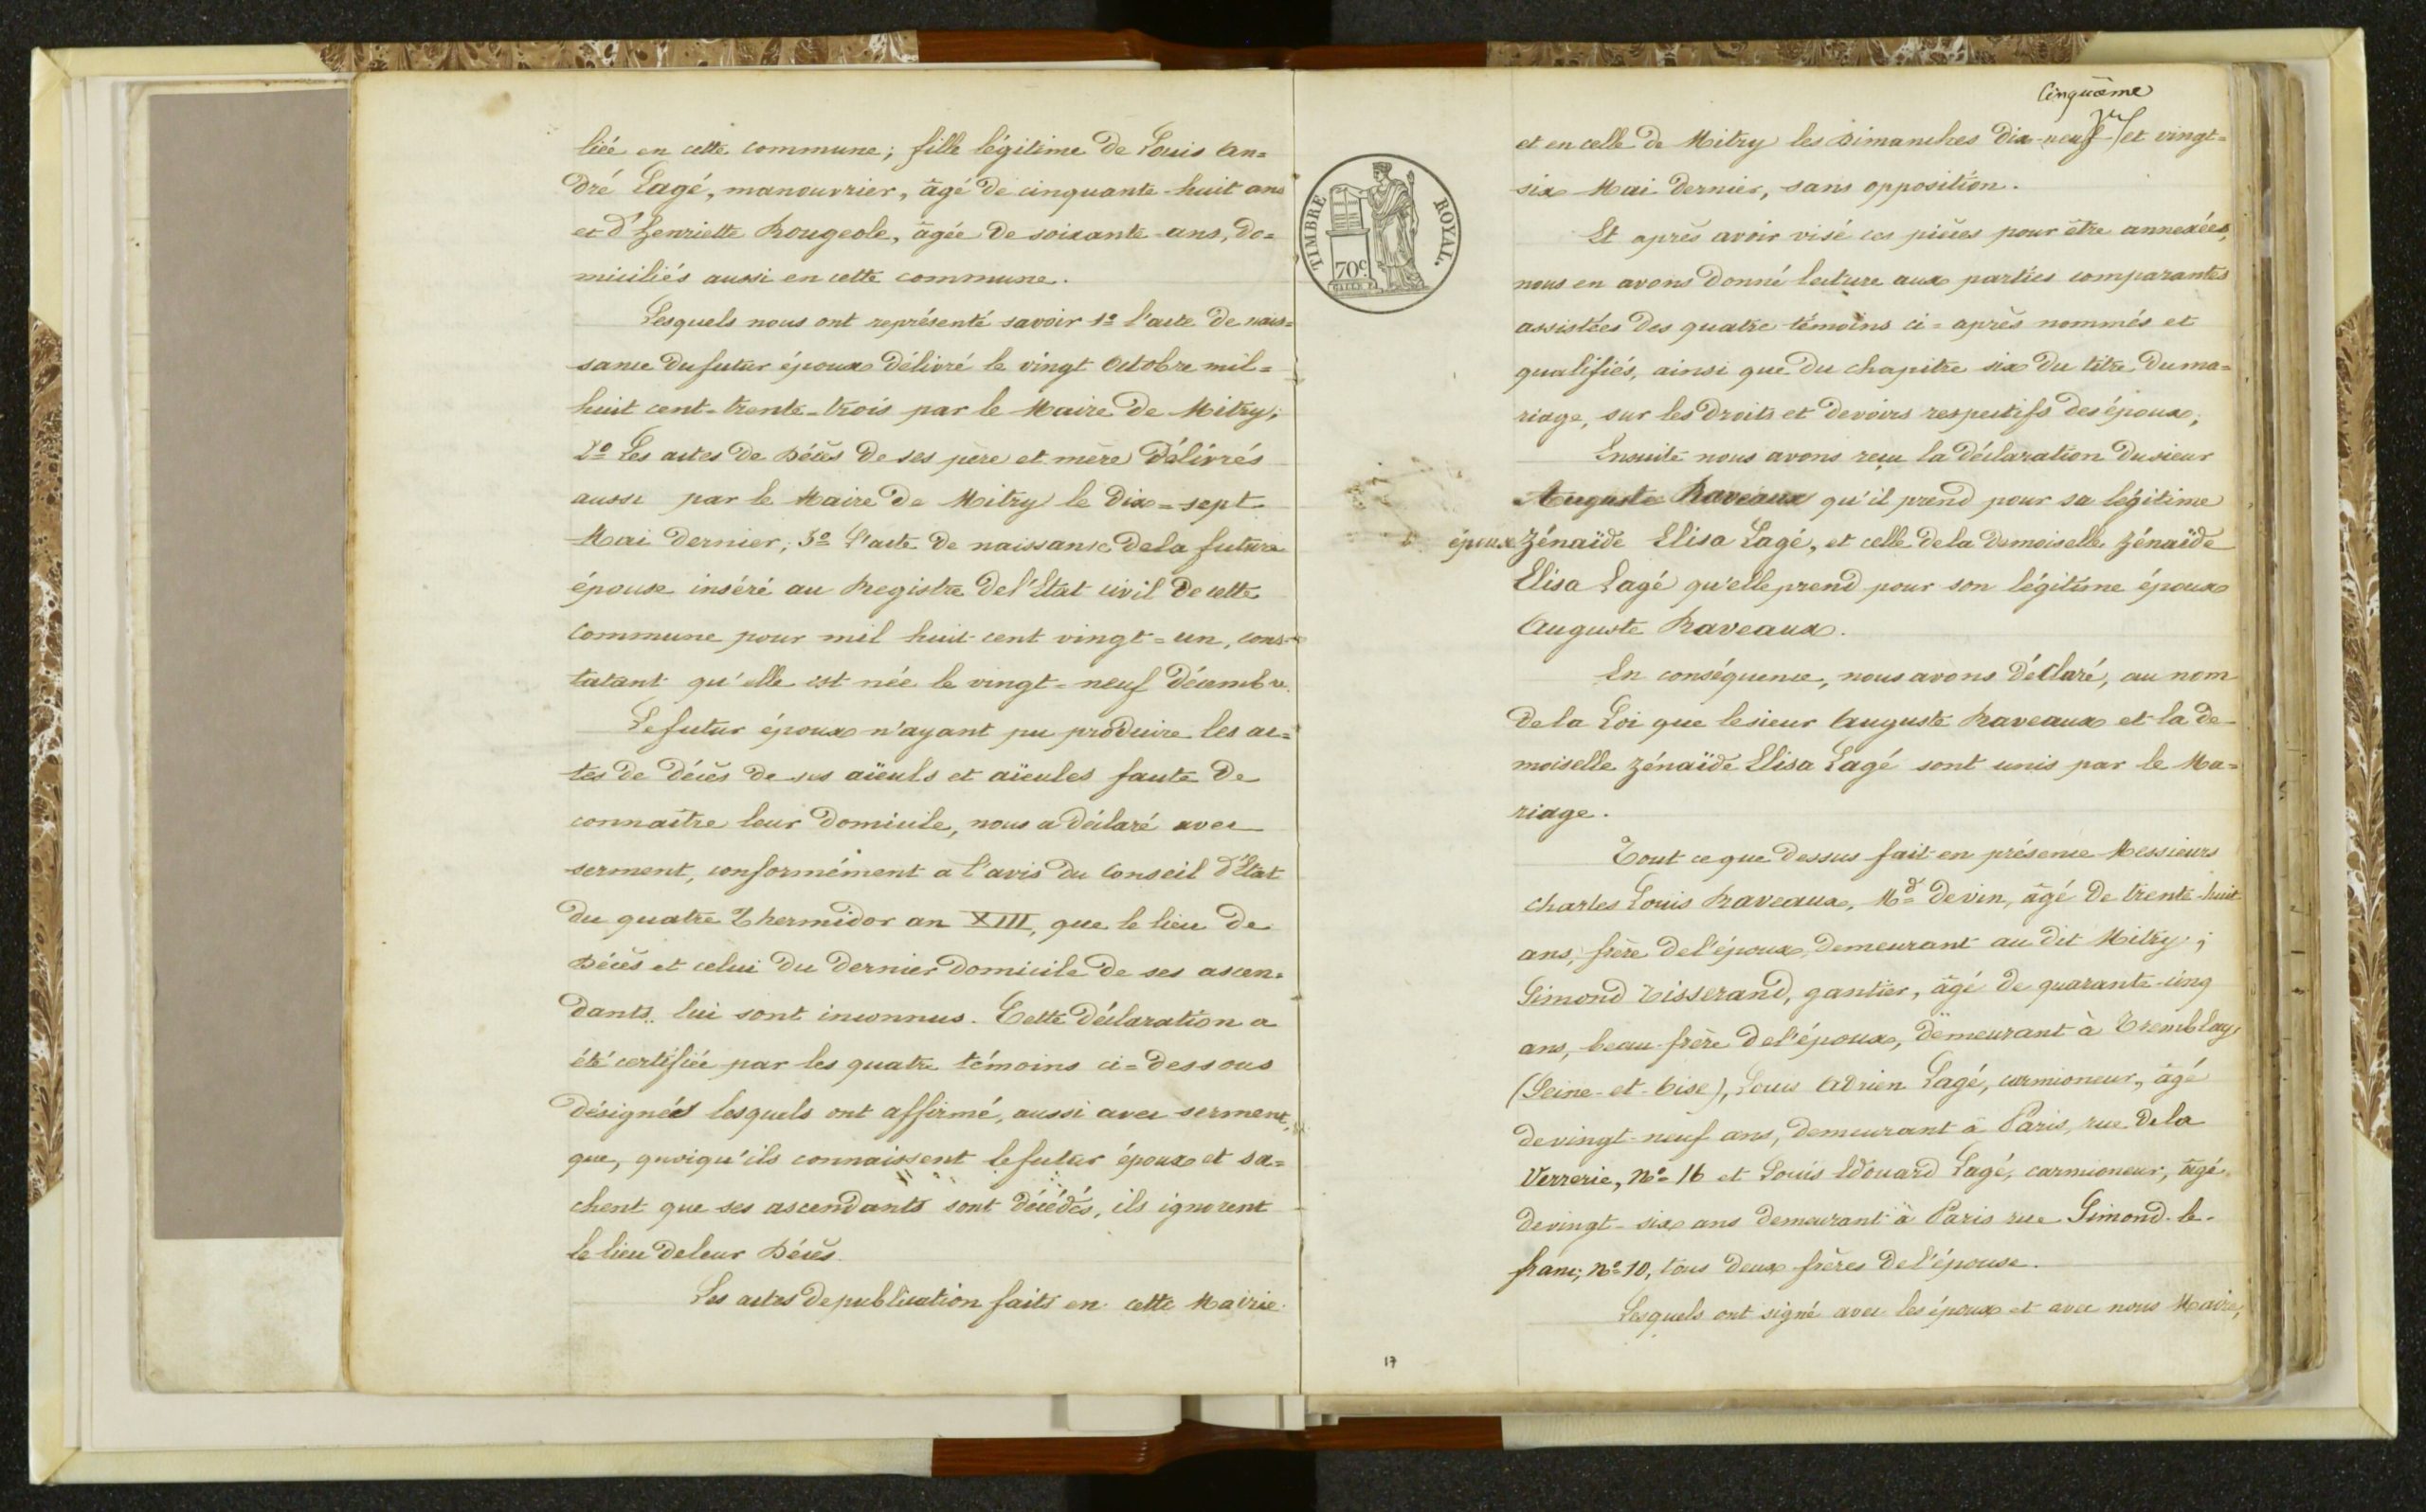 liée en cette commune; fille légitime de Louis An=
dré Lagé, manouvrier, âgé de cinquante-huit ans
et d'henriette Rougeole, âgée de soixante ans, do=
miciliés aussi en cette commune.
Lesquels nous ont représenté savoir 1º l'acte de nais=
sance du futur époux délivré le vingt Octobre mil=
huit cent-trente-trois par le Maire de Mitry;
2º Les actes de Décès de ses père et mère délivrés
aussi par le Maire de Mitry le dix=sept
Mai dernier; 3º l'acte de naissance de la future
épouse inséré au Registre de l'Etat civil de cette
commune pour mil huit cent vingt=un, cons=
tatant qu'elle est née le vingt=neuf décembre.
Le futur époux n'ayant pu produire les ac=
tes de décès de ses aïeuls et aïeules faute de
connaître leur domicile, nous a déclaré avec
serment, conformément a l'avis du Conseil d'Etat
du quatre Thermidor an XIII, que le lieu de
Décès et celui du dernier domicile de ses ascen=
dants lui sont inconnus. Cette déclaration a
été certifiée par les quatre témoins ci=dessous
désignés lesquels ont affirmé, aussi avec serment,
que, quoiqu'ils connaissent le futur époux et sa=
chent que ses ascendants sont décédés, ils ignorent
le lieu de leur Décès.
Les actes de publication faits en cette Mairie
TIMBRE ROYAL.
70c
Cinquième
et en celle de Mitry les Dimanches dix-neuf et vingt=
six Mai dernier, sans opposition.
Et après avoir visé ces pièces pour être annexées,
nous en avons donné lecture aux parties comparantes
assistées des quatre témoins ci=après nommés et
qualifiés, ainsi que du chapitre six du titre du ma=
riage, sur les droits et devoirs respectifs des époux;
Ensuite nous avons reçu la déclaration du sieur
Auguste Raveaux qu'il prend pour sa légitime
épouse Zénaïde Elisa Lagé, et celle de la demoiselle Zénaïde
Elisa Lagé qu'elle prend pour son légitime époux
Auguste Raveaux.
En conséquence, nous avons déclaré, au nom
de la Loi que le sieur Auguste Raveaux et la de-
moiselle Zénaïde Elisa Lagé sont unis par le Ma=
riage.
Tout ce que dessus fait en présence Messieurs
Charles Louis Raveaux, Md de vin, âgé de trente-huit
ans, frère de l'époux, demeurant au dit Mitry;
Simond Tisserand, gantier, âgé de quarante-cinq
ans, beau-frère de l'époux, demeurant à Tremblay
(Seine-et-Oise), Louis Adrien Lagé, carmioneur, âgé
de vingt-neuf ans, demeurant à Paris, rue de la
Verrerie, Nº 16 et Louis Edouard Lagé, carmioneur, âgé
de vingt-six ans demeurant à Paris rue Simond-le-
franc, Nº 10, tous deux frères de l'épouse.
Lesquels ont signé avec les époux et avec nous Maire,
17